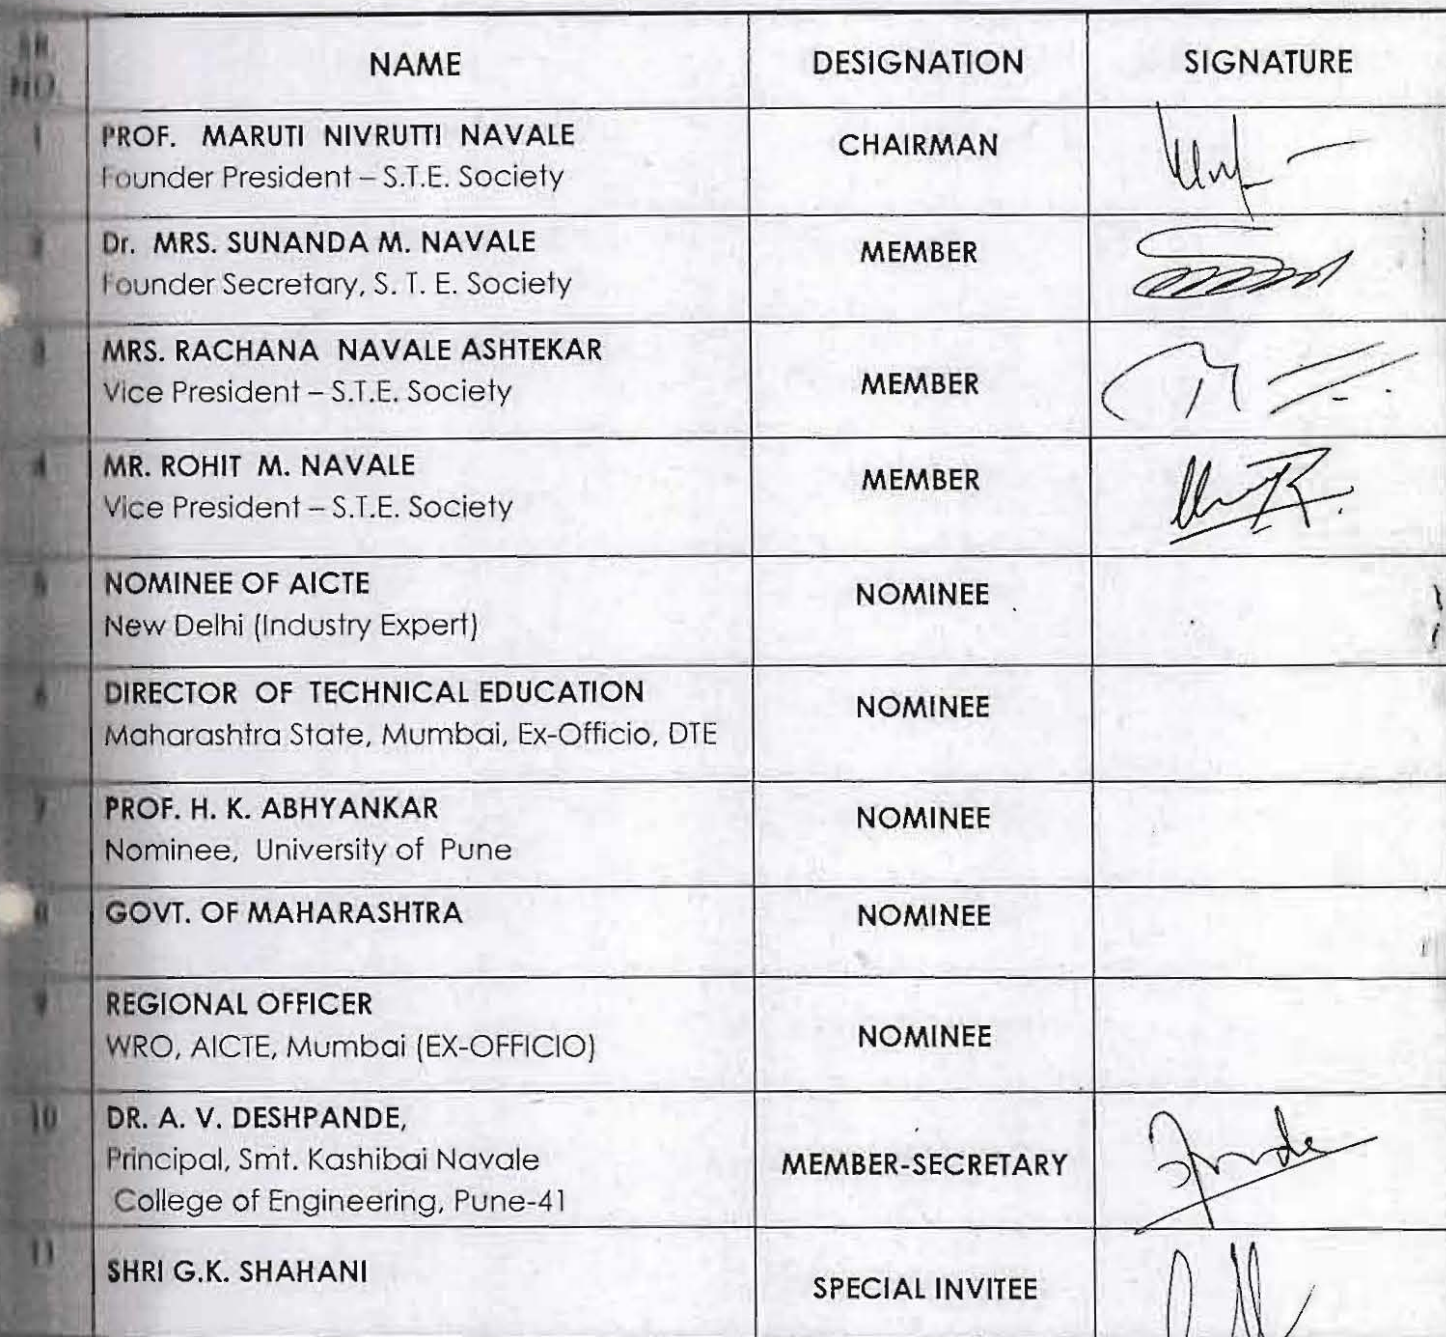 SR.
NO.
NAME
DESIGNATION
SIGNATURE
1
PROF. MARUTI NIVRUTTI NAVALE
Founder President – S.T.E. Society
CHAIRMAN
2
Dr. MRS. SUNANDA M. NAVALE
Founder Secretary, S. T. E. Society
MEMBER
3
MRS. RACHANA NAVALE ASHTEKAR
Vice President – S.T.E. Society
MEMBER
4
MR. ROHIT M. NAVALE
Vice President – S.T.E. Society
MEMBER
5
NOMINEE OF AICTE
New Delhi (Industry Expert)
NOMINEE
6
DIRECTOR OF TECHNICAL EDUCATION
Maharashtra State, Mumbai, Ex-Officio, DTE
NOMINEE
7
PROF. H. K. ABHYANKAR
Nominee, University of Pune
NOMINEE
8
GOVT. OF MAHARASHTRA
NOMINEE
9
REGIONAL OFFICER
WRO, AICTE, Mumbai (EX-OFFICIO)
NOMINEE
10
DR. A. V. DESHPANDE,
Principal, Smt. Kashibai Navale
College of Engineering, Pune-41
MEMBER-SECRETARY
11
SHRI G.K. SHAHANI
SPECIAL INVITEE